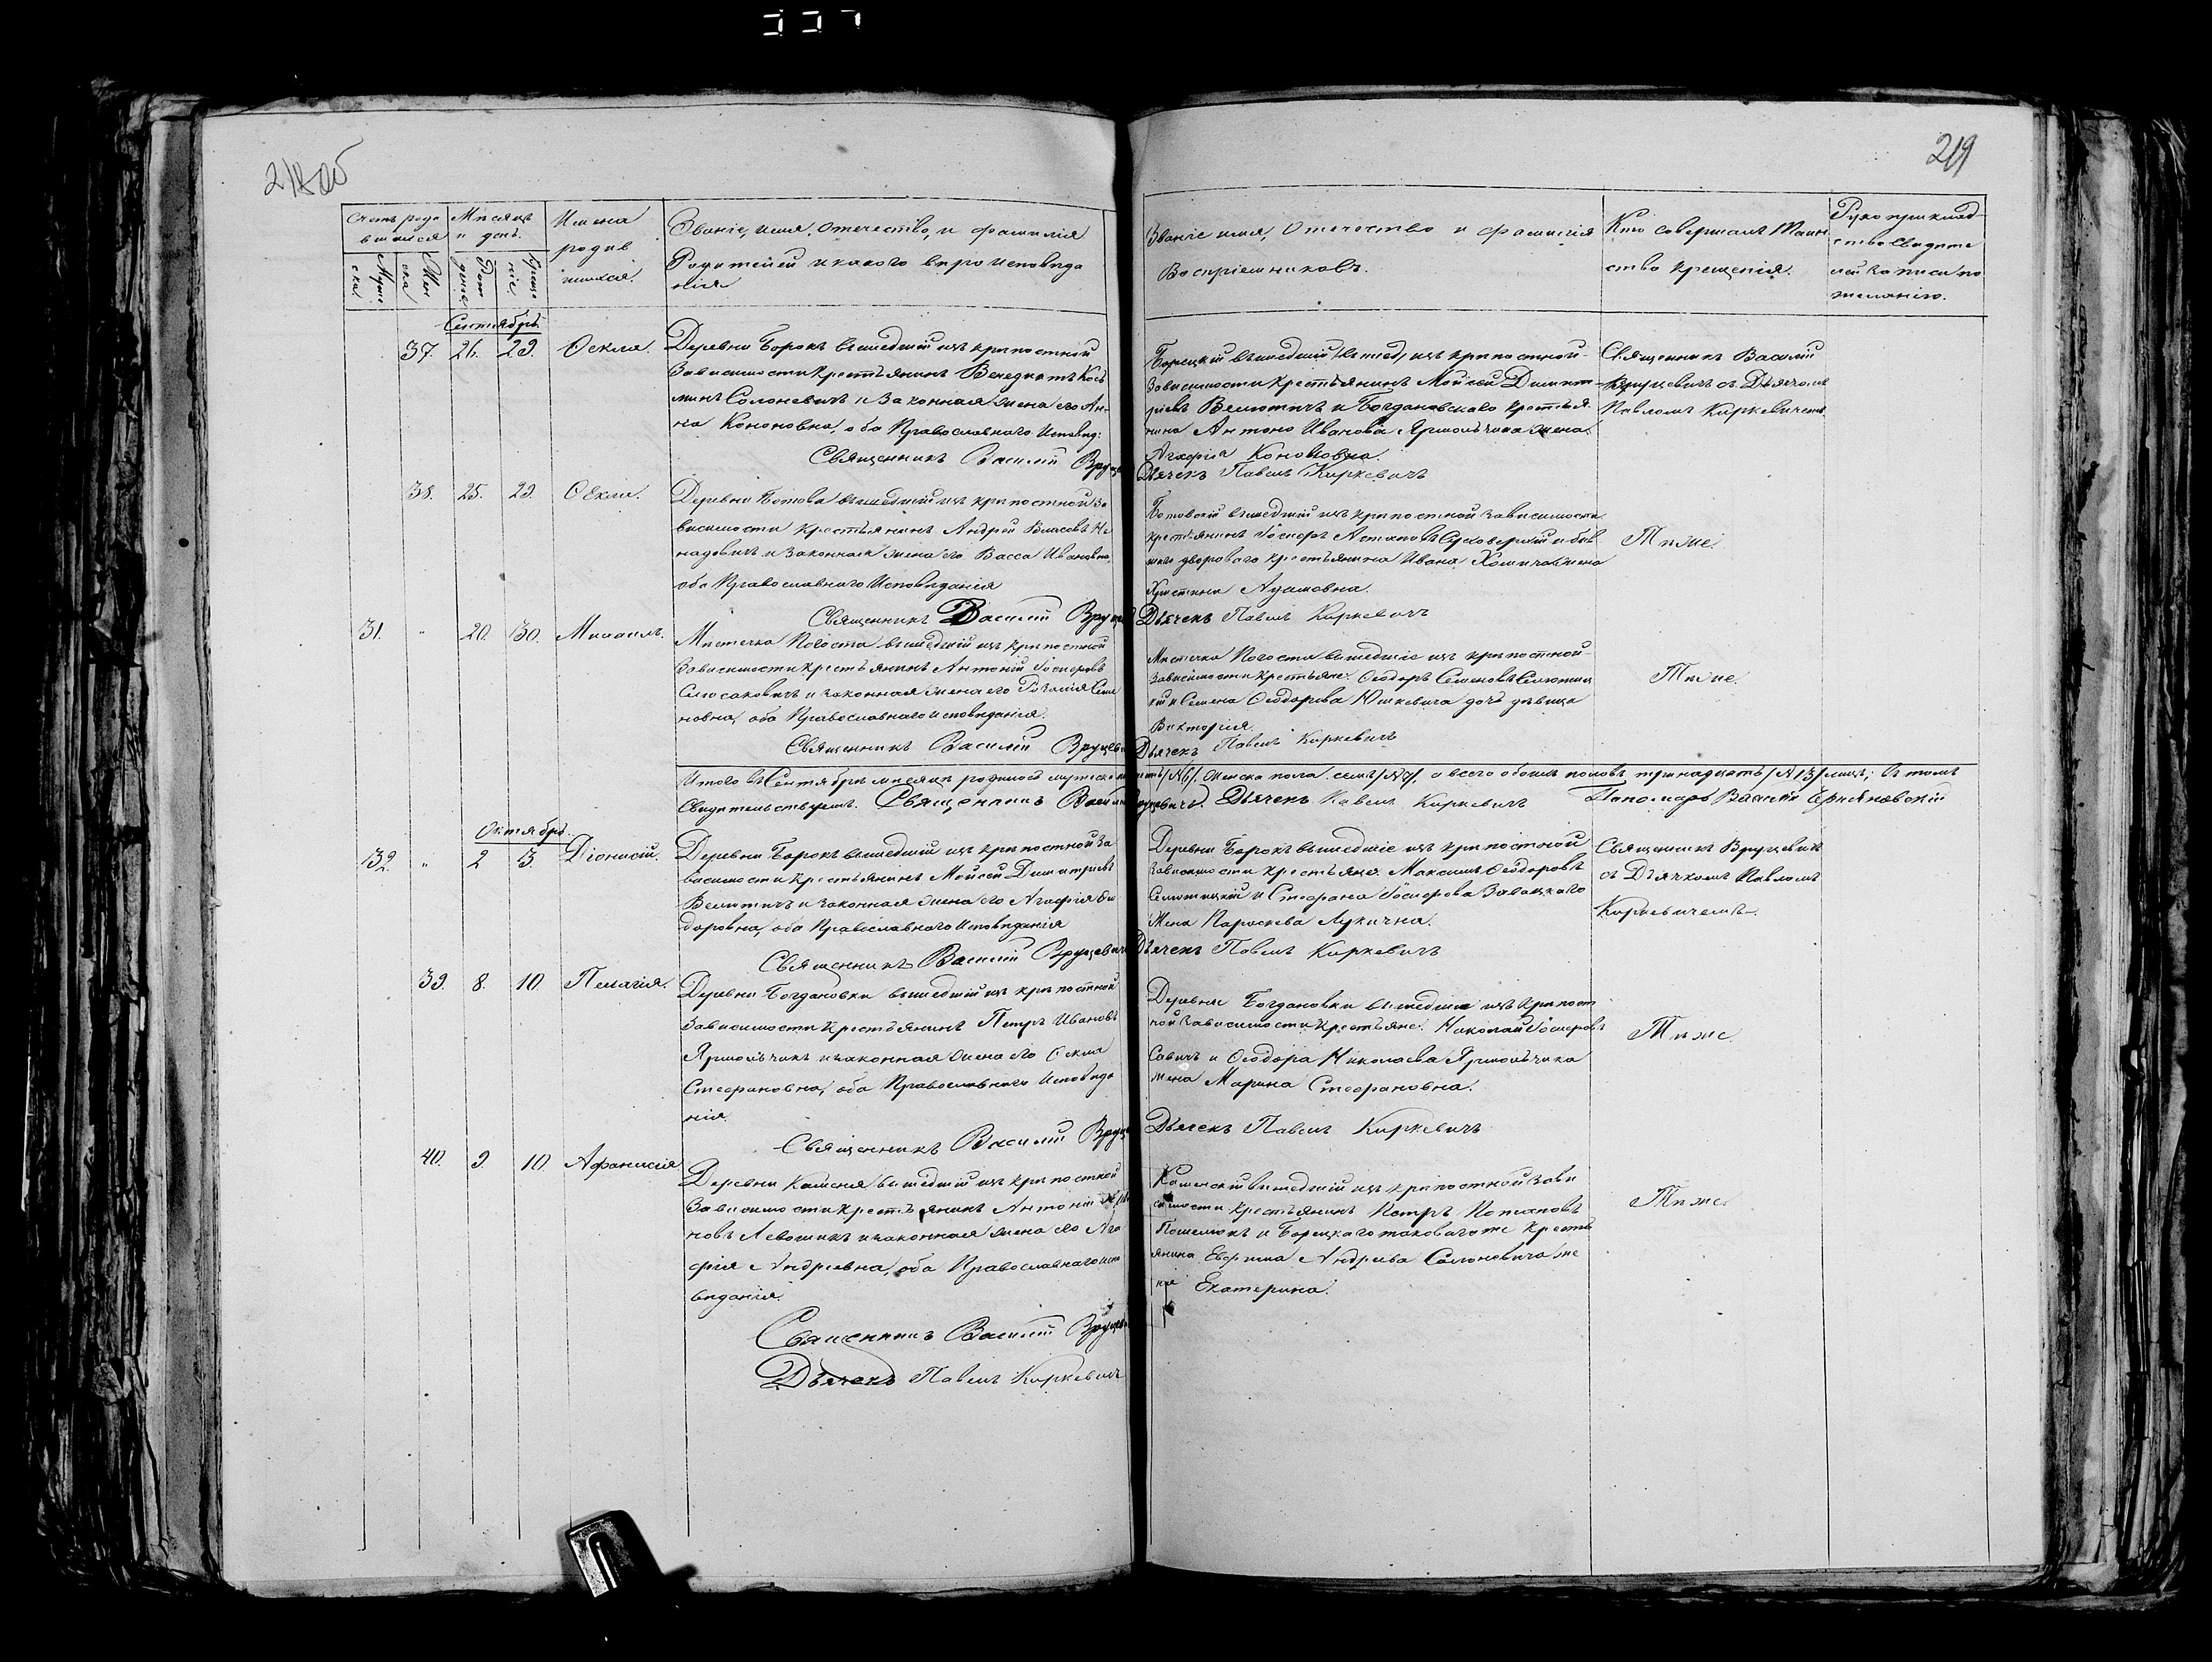 218 об
219
Счетъ роди
вшихся
Мѣсяцъ
и день.
Имена
родив
шихся.
Званіе, имя, отечество, и фамилія
Родителей и какого вѣроисповѣда
нія
Муже
ска.
Жен
ска
Рож
деніе
Креще
ніе
Званіе имя, Отечество и фамилія
Воспріемниковъ.
Кто совершалъ Таин
ство крещенія.
Рукоприклад-
ство свидѣте
лей записи по
желанію.
Сентябрь.
37. 26. 29. Ѳекла.
Деревни Борокъ вышедшій изъ крѣпостной
зависимости крестьянинъ Венедиктъ Кось
минъ Солоневичъ и законная жена его Ан-
на Кононовна, оба Православнаго Исповѣд:
Священникъ Василій Вруце
Борецкій вышедшій изъ крѣпостной
зависимости крестьянинъ Мойсей Димит-
ріевъ Велютичъ и Богдановскаго крестья
нина Антона Иванова Ярмольчика жена
Агафія Кононовна.
Дьячекъ Павелъ Киркевичъ
Священникъ Василій
Вруцевичъ съ Дьячкомъ
Павломъ Киркевичемъ.
38. 25. 29. Ѳекла.
Деревни Ботова вышедшій изъ крѣпостной за
висимости крестьянинъ Андрей Власовъ Не
надовичъ и законная жена его Васса Ивановна,
оба Православнаго Исповѣданія
Священникъ Василій Вруце
Ботовскій вышедшій изъ крѣпостной зависимости
крестьянинъ Іосифъ и быв
шаго двороваго крестьянина Ивана жена
Христина Адамовна.
Дьячекъ Павелъ Киркевичъ
Тѣ же.
31. " 20. 30. Михаилъ.
Мѣстечка Погоста вышедшій изъ крѣпостной
зависимости крестьянинъ Антоній Іосифовъ
и законная жена его Розалія Семе
новна, оба Православнаго исповѣданія.
Священникъ Василій Вруцеви
Мѣстечка Погоста вышедшіе изъ крѣпостной
зависимости крестьяне: Ѳеодоръ Семеновъ
и Семена Ѳеодорова Юшкевича дочь дѣвица
Викторія.
Дьячекъ Павелъ Киркевичъ
Тѣ же.
Итого въ Сентябрѣ мѣсяцѣ родилось мужеска шесть /№6/. Женска пола семь /№7/, а всего обоихъ половъ тринадцать /№13/ лицъ; въ томъ
свидѣтельствуемъ. Священникъ Василій Вруцевичъ. Дьячекъ Павелъ Киркевичъ Пономарь Василій
Октябрь.
32. " 2 3. Діонисій.
Деревни Борокъ вышедшій изъ крѣпостной за
висимости крестьянинъ Мойсей Димитріевъ
Велютичъ и законная жена его Агафія Ѳе
доровна, оба Православнаго Исповѣданія
Священникъ Василій Вруцевичъ
Деревни Борокъ вышедшіе изъ крѣпостной
зависимости крестьяне: Максимъ Ѳеодоровъ
и Стефана Іосифова
жена Параскева Лукична.
Дьячекъ Павелъ Киркевичъ
Священникъ Вруцевичъ
съ Дьячкомъ Павломъ
Киркевичемъ.
39. 8. 10. Пелагія.
Деревни Богдановки вышедшій изъ крѣпостной
зависимости крестьянинъ Петръ Ивановъ
Ярмольчикъ и законная жена его Ѳекла
Стефановна, оба Православнаго Исповѣда
нія.
Священникъ Василій Вруце
Деревни Богдановки вышедшіе изъ крѣпост
ной зависимости крестьяне: Николай Іосифовъ
Савичъ и Ѳеодора Николаева Ярмольчика
жена Марина Стефановна.
Дьячекъ Павелъ Киркевичъ
Тѣ же.
40. 9. 10. Афанасія
Деревни Каменя вышедшій изъ крѣпостной
зависимости крестьянинъ Антоній
новъ и законная жена его Ага
фія Андреевна, оба Православнаго испо
вѣданія.
Священникъ Василій Вруцеви
Дьячекъ Павелъ Киркевичъ
Каменскій вышедшій изъ крѣпостной зави
симости крестьянинъ Петръ Потаповъ
и Борецкаго таковаго же кресть
янина Ефима Андреева Солоневича же
на Екатерина.
Тѣ же.